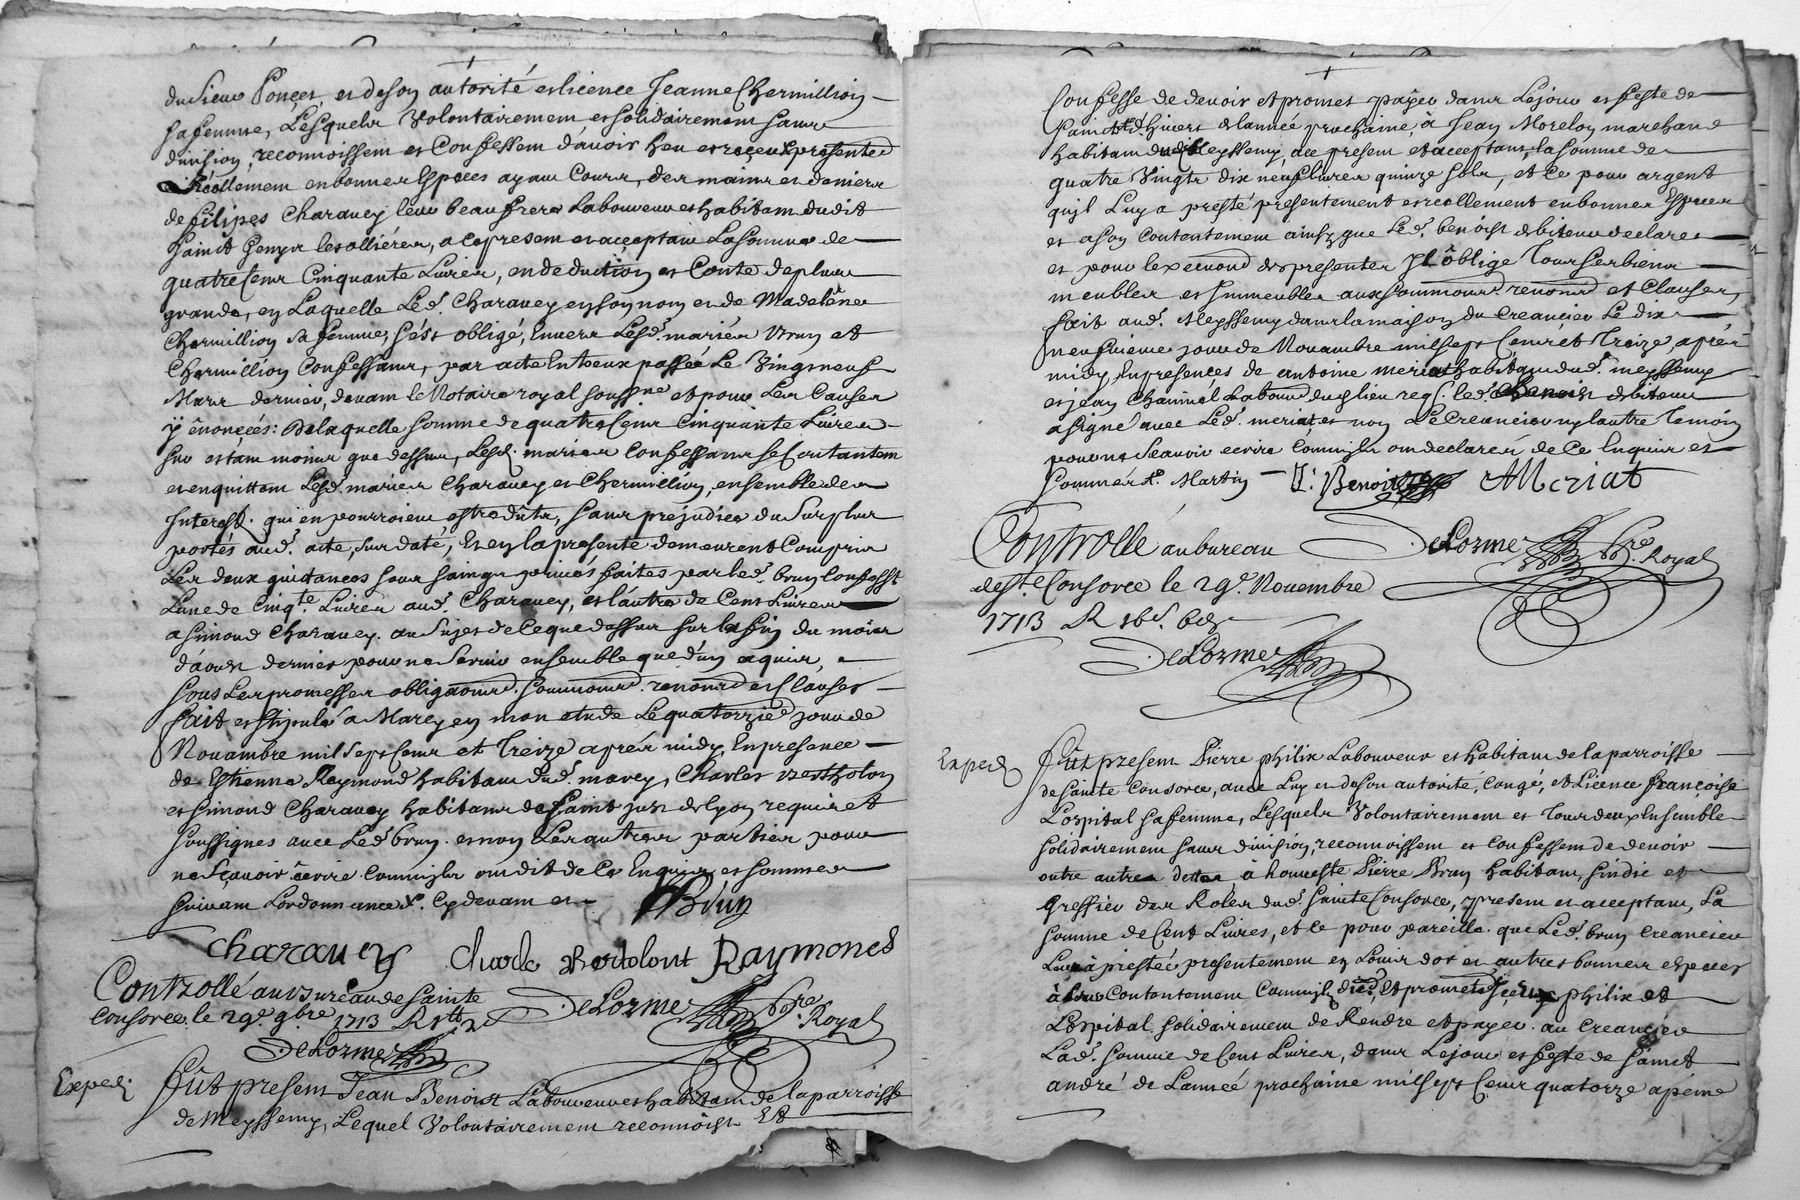 du Sieur Ponçet, et de son autorité et licence Jeanne Chermillion
sa femme, Lesquels volontairement et solidairement sans
division, reconnoissent et Confessent d'avoir heu et reçeu presente
Réellement en bonnes Especes ayant Cours, des mains et deniers
de filipes Charavey leur beaufrere Laboureur et habitant dudit
Saint Genys les ollières, a ce present et acceptant La somme de
quatre Cent Cinquante Livres, en deduction et Conte de plus
grande, en Laquelle Led. Charavey en son nom et de Madelêne
Chermillion sa femme, s'est obligé, Envers Lesd. mariés Brun et
Chermillion Confessant, par acte Entreux passé Le Vingt neuf
Mars dernier, devant le Notaire royal soussne. et pour Les Causes
y énoncées: De laquelle somme de quatre Cent Cinquante Livres
sur et tant moins que dessus, Lesd. mariés Confessant se Contantent
et en quittent Lesd. mariés Charavey et Chermillion, ensemble des
Interest. qui en pourroient estre dûts, sans prejudice du Surplus
portés aud. acte, sur daté, Et en la presente demeurent Compris
Les deux quittances sous saings privés faites par led. brun Confesst
Lune de Cinqte. Livres aud. Charavey, et l'autre de Cent Livres
a Simond Charavey. au Sujet de Ce que dessus sur la fin du mois
d'aoust dernier pour ne Servir ensemble que d'un aquit,
Sous Les promesses obligaons. soumons. renons. et Clauses
fait et stipulé a Marcy en mon etude Le quatorzie. jour de
Novambre mil Sept Cent et Treize après midy, En presence
de Estienne Raymond habitant dud. marcy, Charles Bertholon
et Simond Charavey habitans de Saint just de lyon requis et
Soussignes avec Led. brun. et non Les autres parties pour
ne sçavoir êcrire Comm'ils ont dit de Ce Enquis et sommes
suivant Lordonnance. Cy devant et
Brun
charavey Charle Bertolont Raymoned
Controllé au bureau de Sainte
Consorce le 29e. 9bre 1713 R
DeLorme Nre. Royal
DeLorme
Exped.
Fût present Jean Benoist Laboureur et habitant de la parroisse
de Meyssemy, Lequel Volontairement reconnoist Et
Confesse de devoir et promet payer dans Le jour et feste de
Saint d'hivers de lannée prochaine, à Jean Morelon marchand
habitant dud. Meyssemy, ace present et acceptant, la somme de
quatre Vingts dix neuf livres quinze sols, et Ce pour argent
qu'il Luy a presté presentement et reellement en bonnes Especes
et a son Contentement ainsy que Led. benoist debiteur declare
et pour lexecuon. des presentes Jl ôblige Tous ses biens
meubles et Immeubles aux soumons. renons. et Clauses,
fait aud. Meyssemy dans la maison du Creancier Le dix
neufvieme jour de Novambre mil sept Cent et Treize après
midy, En presences de antoine meriat habitant dud. meyssemy
et jean Labour. dud. lieu req. led. Benoist debiteur
a signé avec Led. meriat, et non Le Creancier ny lautre Temoin
pour ne Scavoir ecrire Comm'ils ont declarés de Ce Enquis et
sommés. Martin J: Benoit AMeriat
Controllé au bureau
de Ste. Consorce le 29e. Novembre
1713 R
DeLorme Nre. Royal
DeLorme
Exped.
Fût present Pierre philix Laboureur et habitant de la parroisse
de Sainte Consorce, avec Luy et de son autorité, Congé, et Licence françoise
Lospital sa femme, Lesquels Volontairement et Tous deux Ensemble
solidairement sans division, reconnoissent et Confessent de devoir
outre autres dettes à honneste Pierre Brun habitant, sindic et
Greffier des Roles dud. Sainte Consorce, present et acceptant, La
somme de Cent Livres, et Ce pour pareille que Led. brun Creancier
Leur à prestée presentement en Louis dor et autres bonnes especes
à leur Contantement Comm'ils dient, Et promettent philix et
Lospital Solidairement de Rendre et payer au Creancier
Lad. somme de Cent Livres, dans Le jour et feste de Saint
andré de Lanneé prochaine mil Sept Cent quatorze a peine